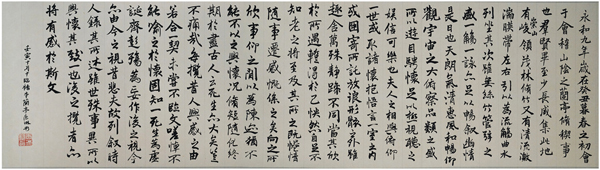 永和九年歲在癸丑暮春之初會
于會稽山陰之蘭亭脩稧事
也群賢畢至少長咸集此地
有崇山峻領茂林脩竹又有清流激
湍暎帶左右引以為流觴曲水
列坐其次雖無絲竹管弦之
盛一觴一詠亦足以暢敘幽情
是日也天朗氣清惠風和暢仰
觀宇宙之大俯察品類之盛
所以遊目騁懷足以極視聽之
娛信可樂也夫人之相與俯仰
一世或取諸懷抱悟言一室之內
或因寄所託放浪形骸之外雖
趣舍萬殊靜躁不同當其欣
於所遇暫得於己怏然自足不
知老之將至及其所之既惓情
隨事遷感慨係之矣向之所
欣俛仰之間以為陳迹猶不
能不以之興懷況脩短隨化終
期於盡古人云死生亦大矣豈
不痛哉每攬昔人興感之由
若合一契未嘗不臨文嗟悼不
能喻之於懷固知一死生為虛
誕齊彭殤為妄作後之視今
亦由今之視昔悲夫故列敘時
人錄其所述雖世殊事異所以
興懷其致一也後之攬者亦
將有感於斯文
壬寅